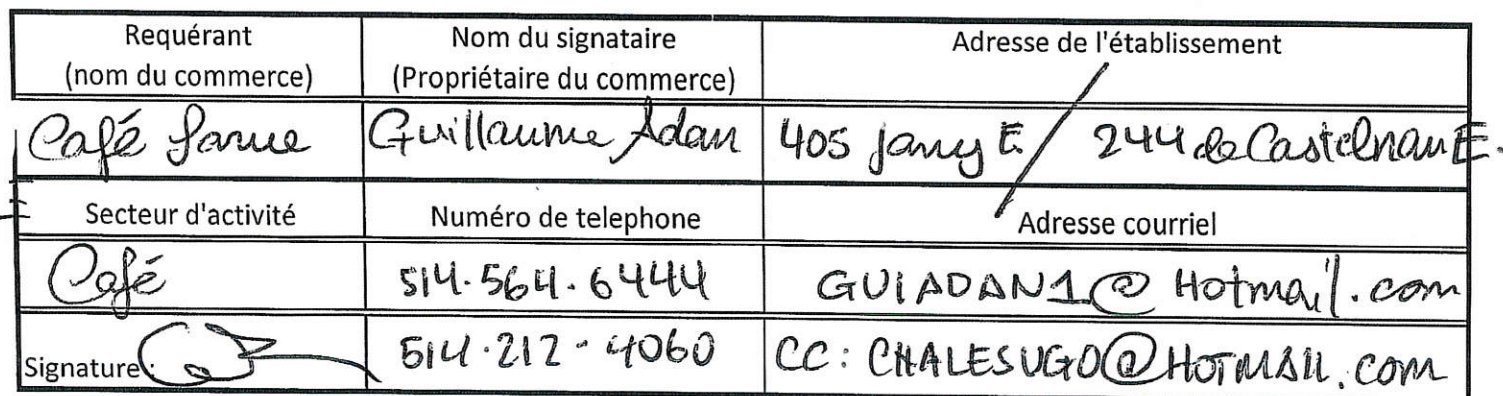 Requérant
(nom du commerce)
Nom du signataire
(Propriétaire du commerce)
Adresse de l'établissement
Café
Guillaume Adan
405 Jarry E. / 244 de Castelnau E.
Secteur d'activité
Numéro de telephone
Adresse courriel
Café
514.564.6444
GUIADAN1@Hotmail.com
Signature :
514.212-4060
CC: CHALESUGO@HOTMAIL.com